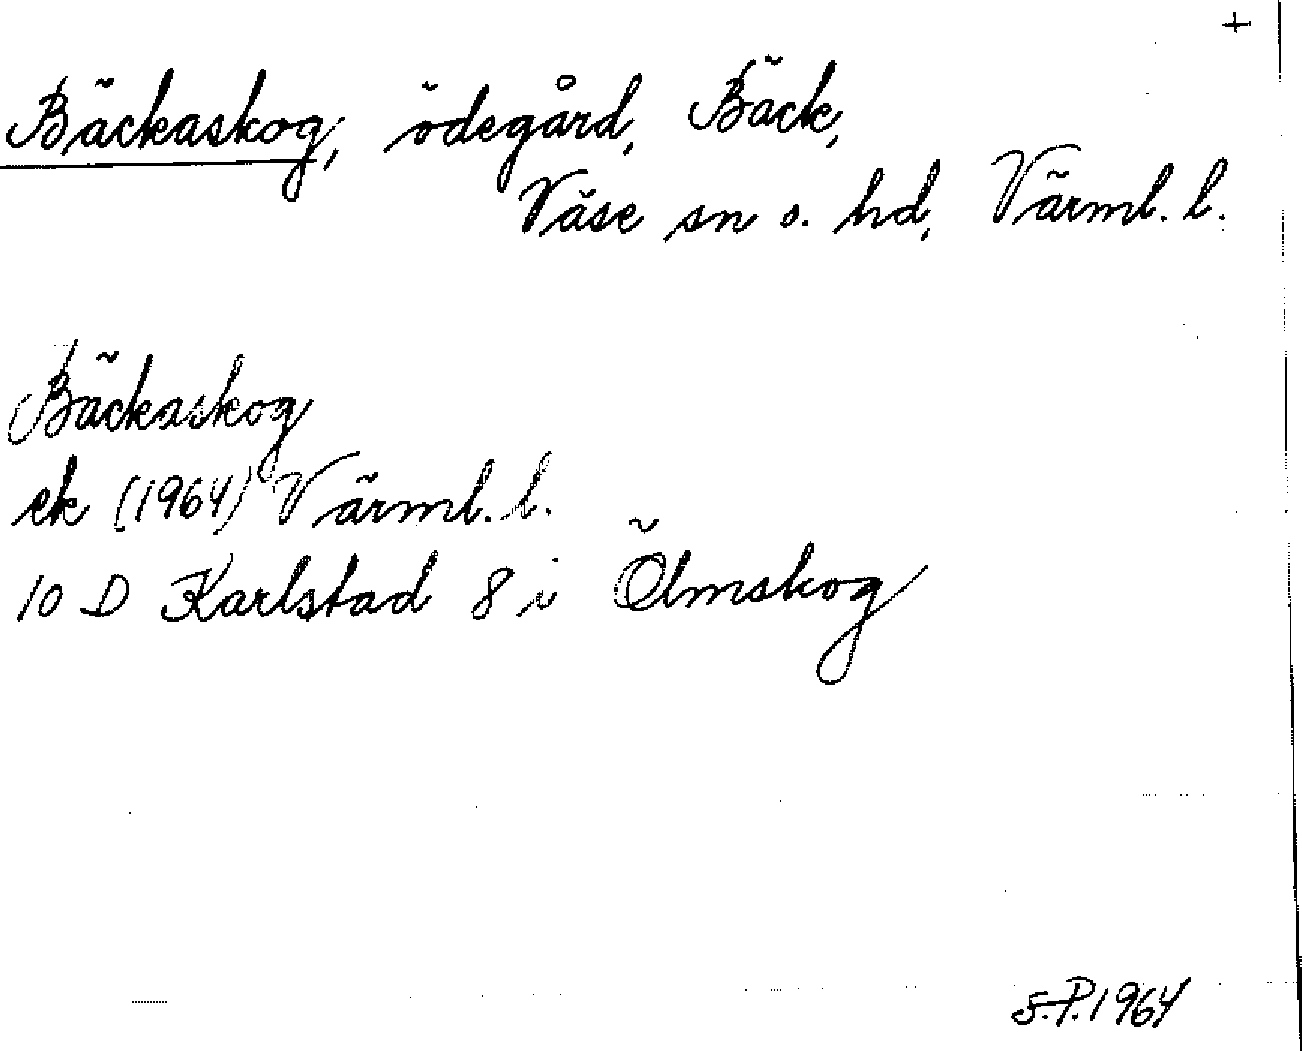 +
Bäckaskog, ödegård, Bäck,
Väse sn o. hd, Värml. l.
Bäckaskog
ek (1964) Värml. l.
10 D Karlstad 8 i Ölmskog
S.P. 1964